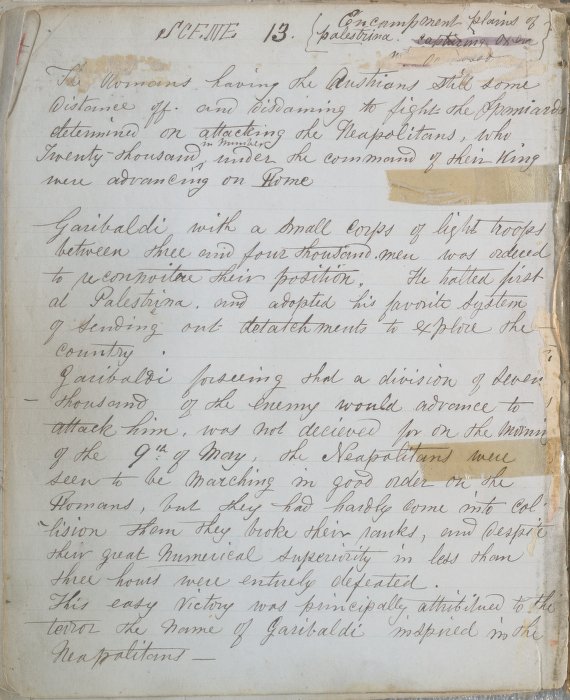 SCENE 13. { Encampment plains of }
palestrina. capturing
The Romans having the Austrians still some
distance off. and disdaining to fight the Spaniards
determined on attacking the Neapolitans, who
in Number
Twenty-thousand, under the command of their King
were advancing on Rome
Garibaldi with a small corps of light troops
between three and four thousand men was ordered
to reconnoitre their position. He halted first
at Palestrina. and adopted his favorite system
of sending out detatchments to explore the
country.
Garibaldi forseeing that a division of seven
thousand of the enemy would advance to
attack him, was not decieved for on the morning
of the 9th of May, the Neapolitans were
seen to be marching in good order on the
Romans, but they had hardly come into col-
lision them they broke their ranks, and despite
their great Numerical superiority in less than
three hours were entirely defeated.
This easy victory was principally attributed to the
terror the name of Garibaldi inspired in the
Neapolitans —